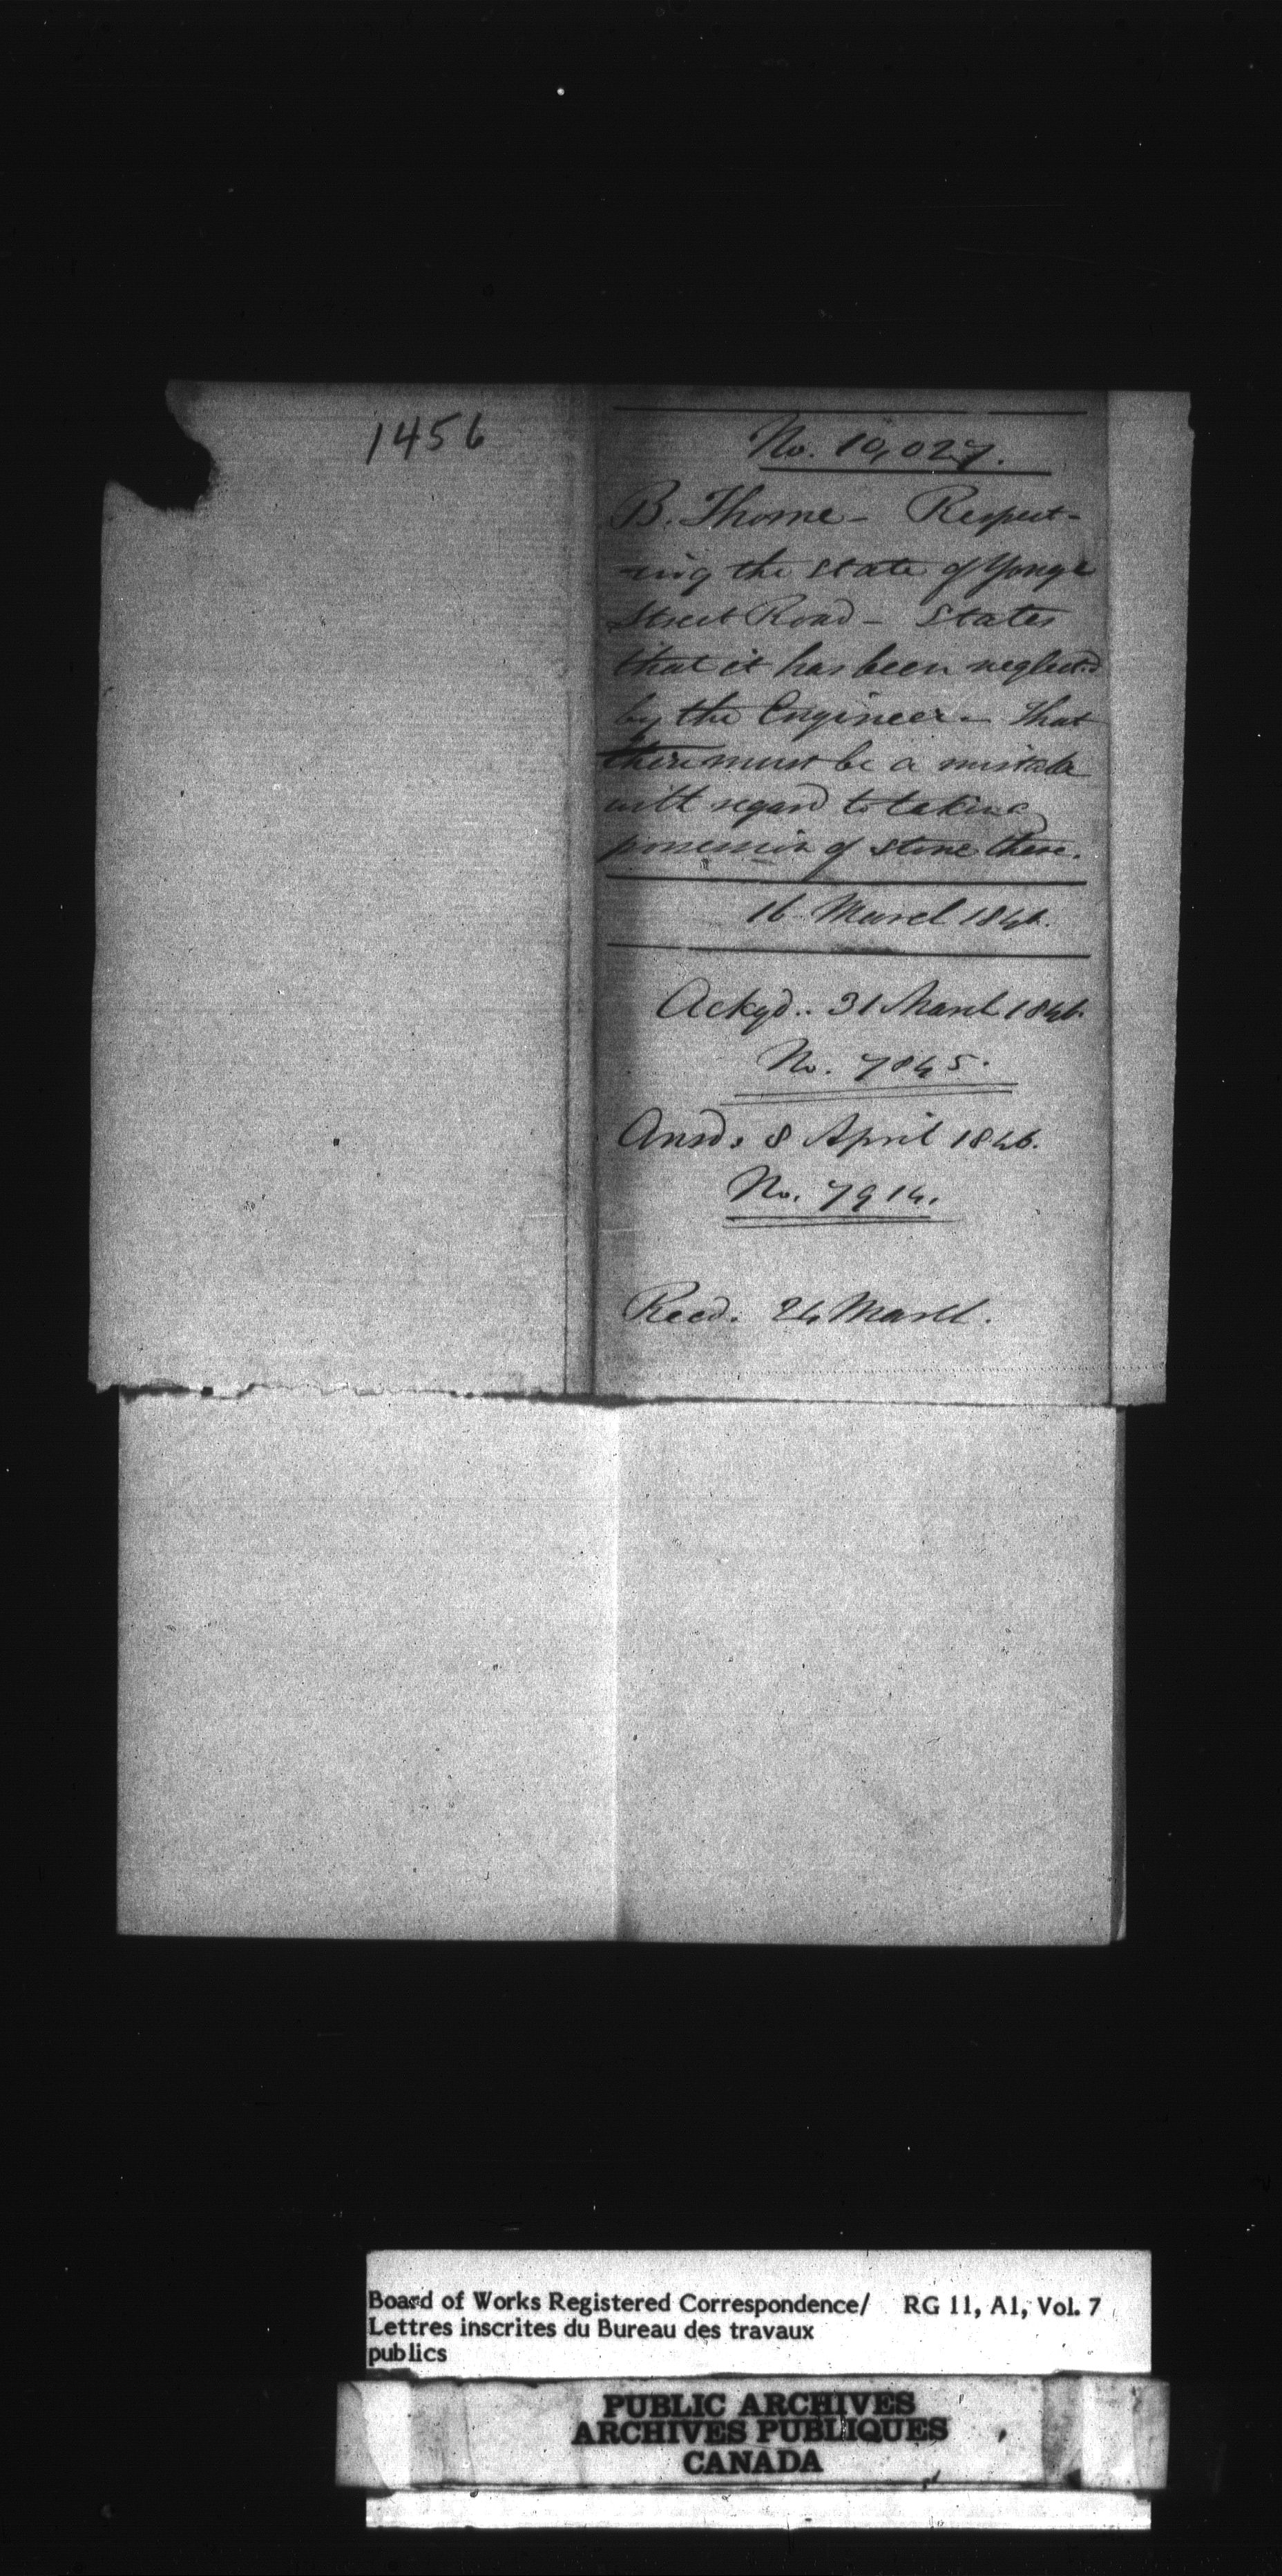 1456
No. 10,027.
B. Thorne - Respect-
-ing the state of Yonge
Street Road - States
that it has been neglected
by the Engineer - That
there must be a mistake
with regard to taking
possession of stone there.
16 March 1846.
Ackgd.. 31 March 1846
No. 7845.
Ansd. 8 April 1846.
No. 7914.
Recd. 24 March.
Board of Works Registered Correspondence/ RG 11, A1, Vol. 7
Lettres inscrites du Bureau des travaux
publics
PUBLIC ARCHIVES
ARCHIVES PUBLIQUES
CANADA